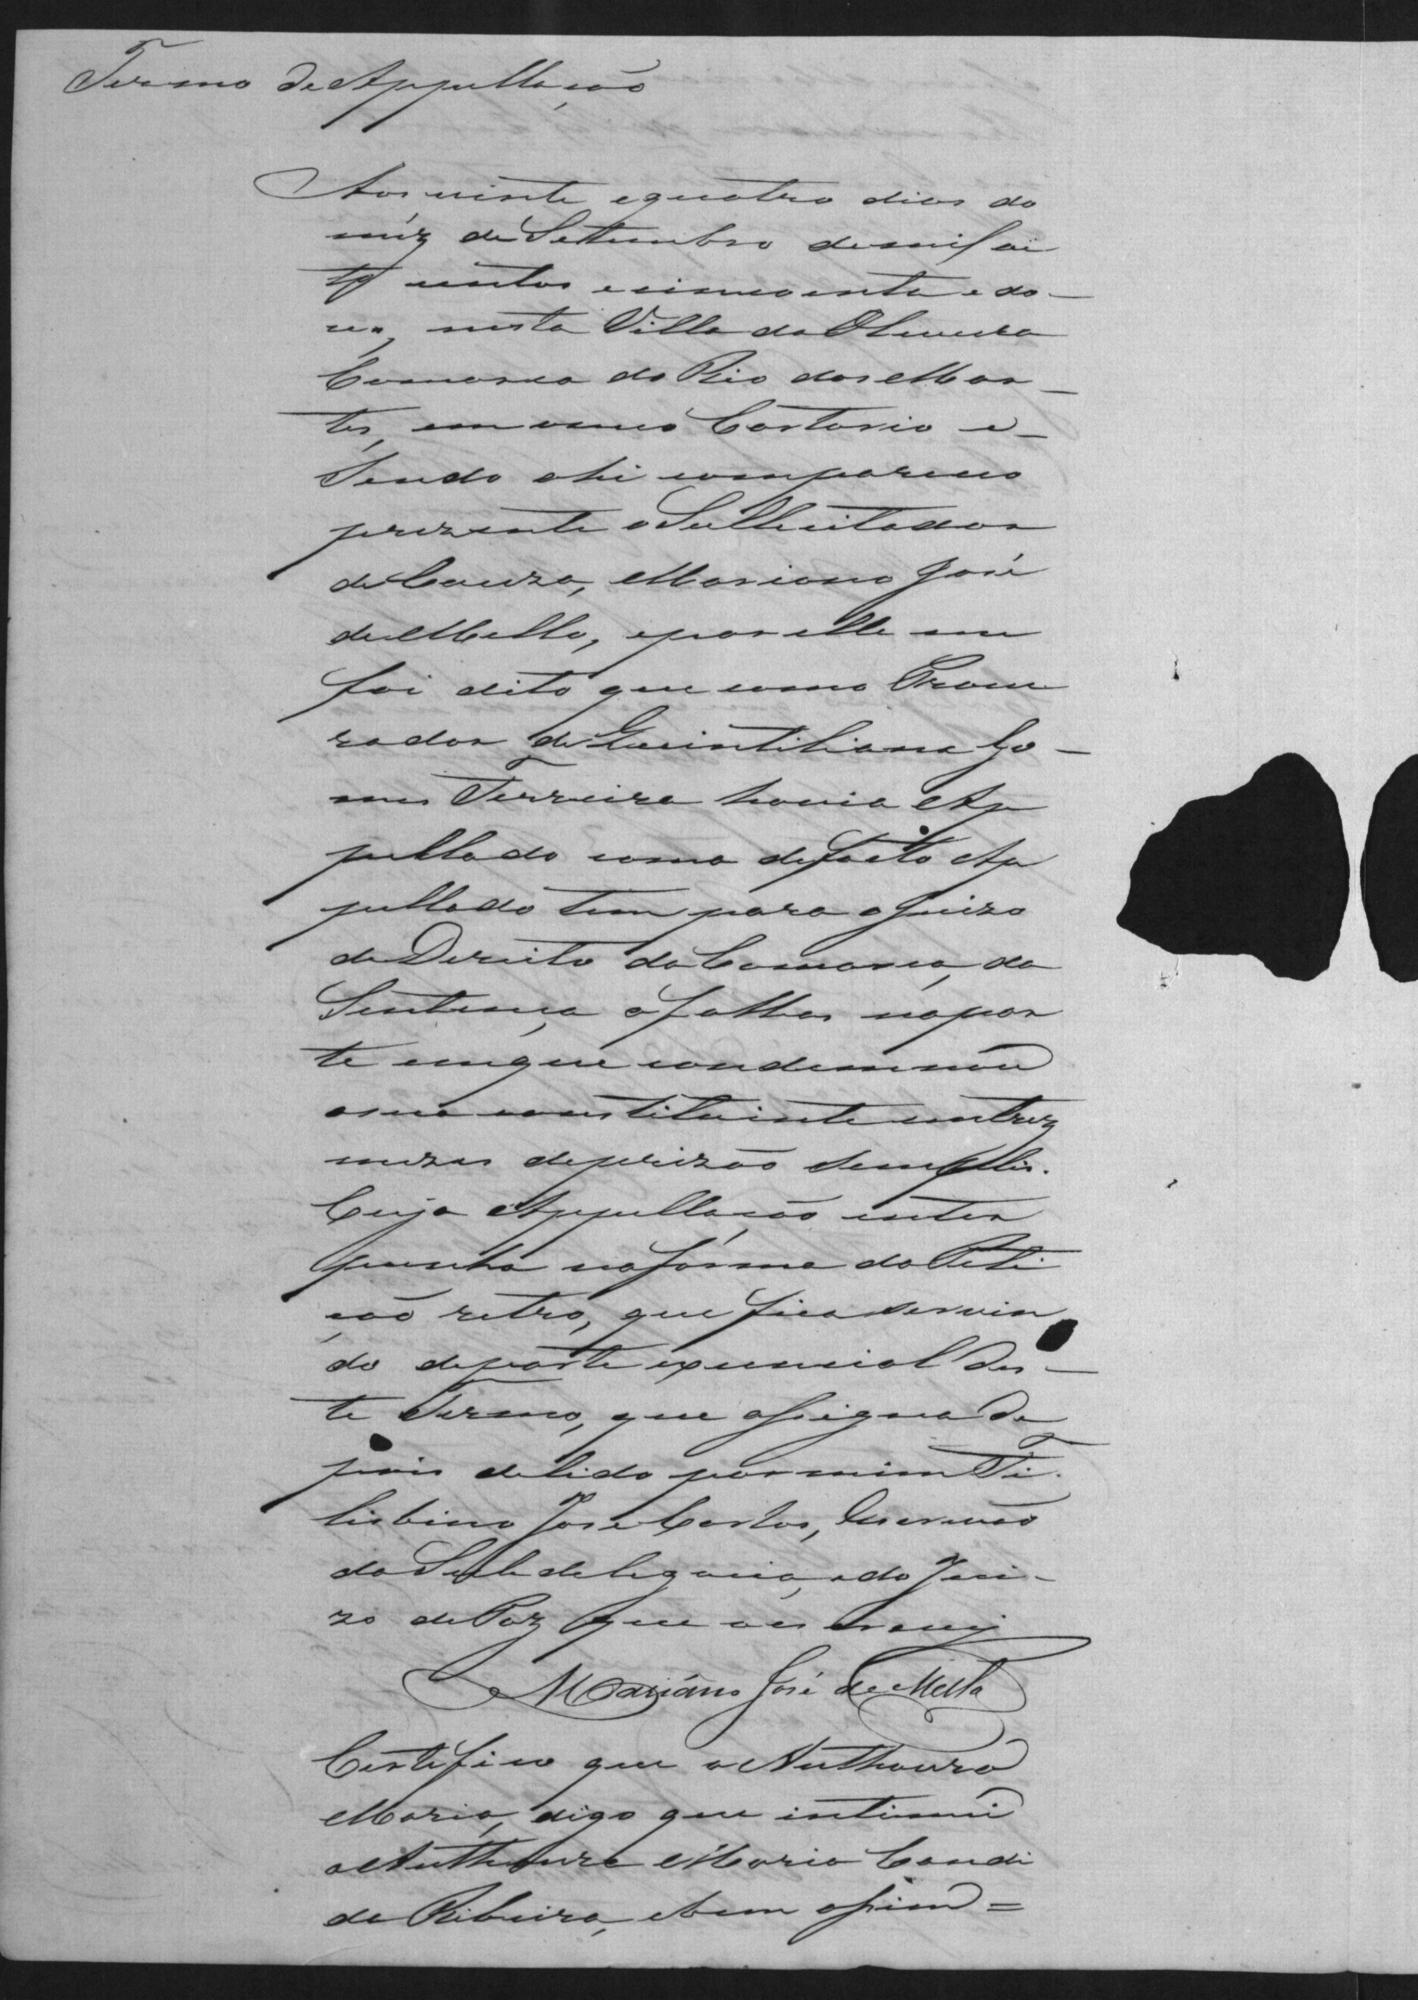 Termo de Appellação
Aos vinte e quatro dias do
mêz de Settembro de mil oi
to centos e cincoenta e do-
us, nesta Villa da Oliveira
Comarca do Rio das Mor-
tes, em o meo Cartorio e-
sendo ahi compareceo
prezente o Sollicitador
de Cauza, Mariano José
de Mello, e por elle me
foi dito que como Procu
rador de Quintiliana Go-
mes Ferreira havia Ap
pellado como de facto Ap
pellado tem para o Juizo
de Dereito da Comarca, da
Sentença a folhas na par
te em que condemnou
a sua constituinte em trez
mezes de prizão simples.
Cuja Appellação inter
punha na fórma da Peti
ção retro, que fica servin
do de parte exencial des-
te Termo, que assigna de
pois de lido por mim Fe
lisbino José Carlos, Escrivão
da Sub delegacia, e do Jui-
zo de Paz que o escrevy
Mariano José de Mello
Certifico que a Authoura
Maria, digo que intimei
a Authoura Maria Candi
da Ribeira, e bem assim =